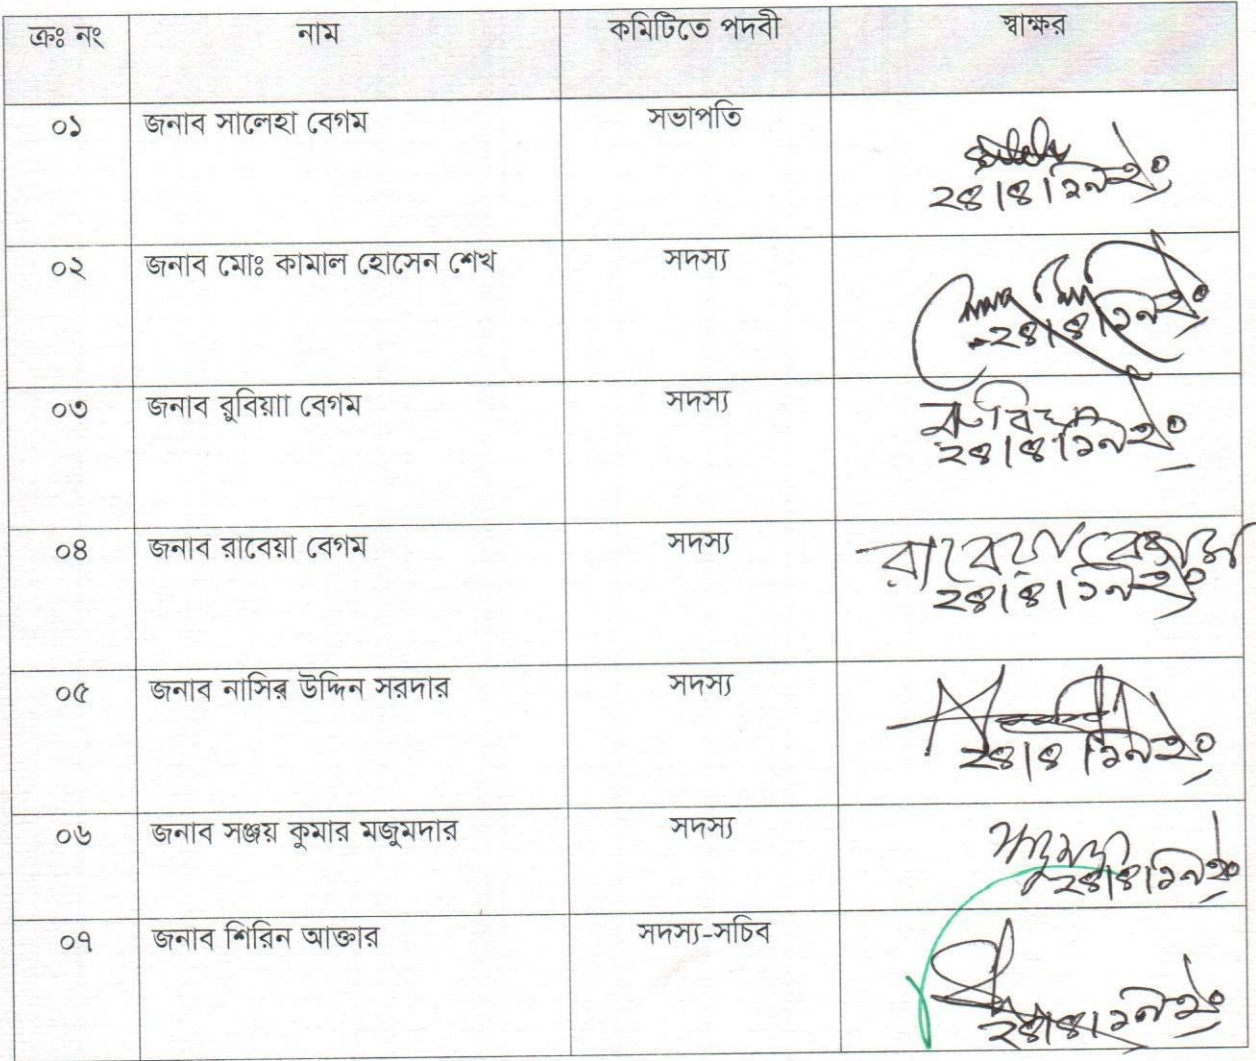 ক্রঃ নং নাম কমিটিতে পদবী স্বাক্ষর
০১ জনাব সালেহা বেগম সভাপতি
২৪|৪|১৯ইং
০২ জনাব মোঃ কামাল হোসেন শেখ সদস্য
২৪|৪|১৯ইং
০৩ জনাব রুবিয়াা বেগম সদস্য রুবিয়া
২৪|৪|১৯ইং
০৪ জনাব রাবেয়া বেগম সদস্য রাবেয়া বেগম
২৪|৪|১৯ইং
০৫ জনাব নাসির উদ্দিন সরদার সদস্য
২৪|৪|১৯ইং
০৬ জনাব সঞ্জয় কুমার মজুমদার সদস্য
২৪|৪|১৯ইং
০৭ জনাব শিরিন আক্তার সদস্য-সচিব
২৪|৪|১৯ইং